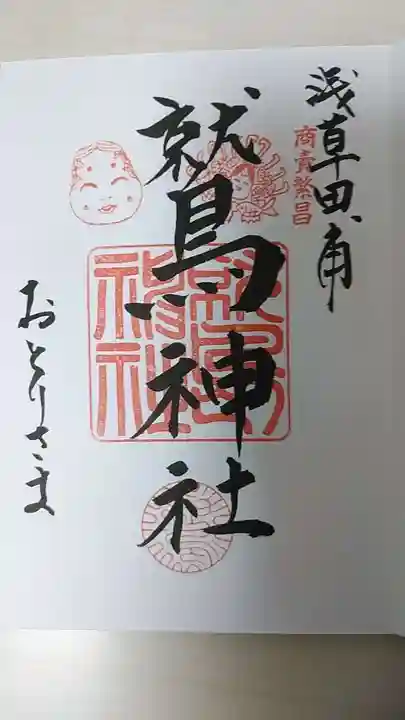 浅草田甫
商売繁昌
鷲神社
鷲神社
おとりさま